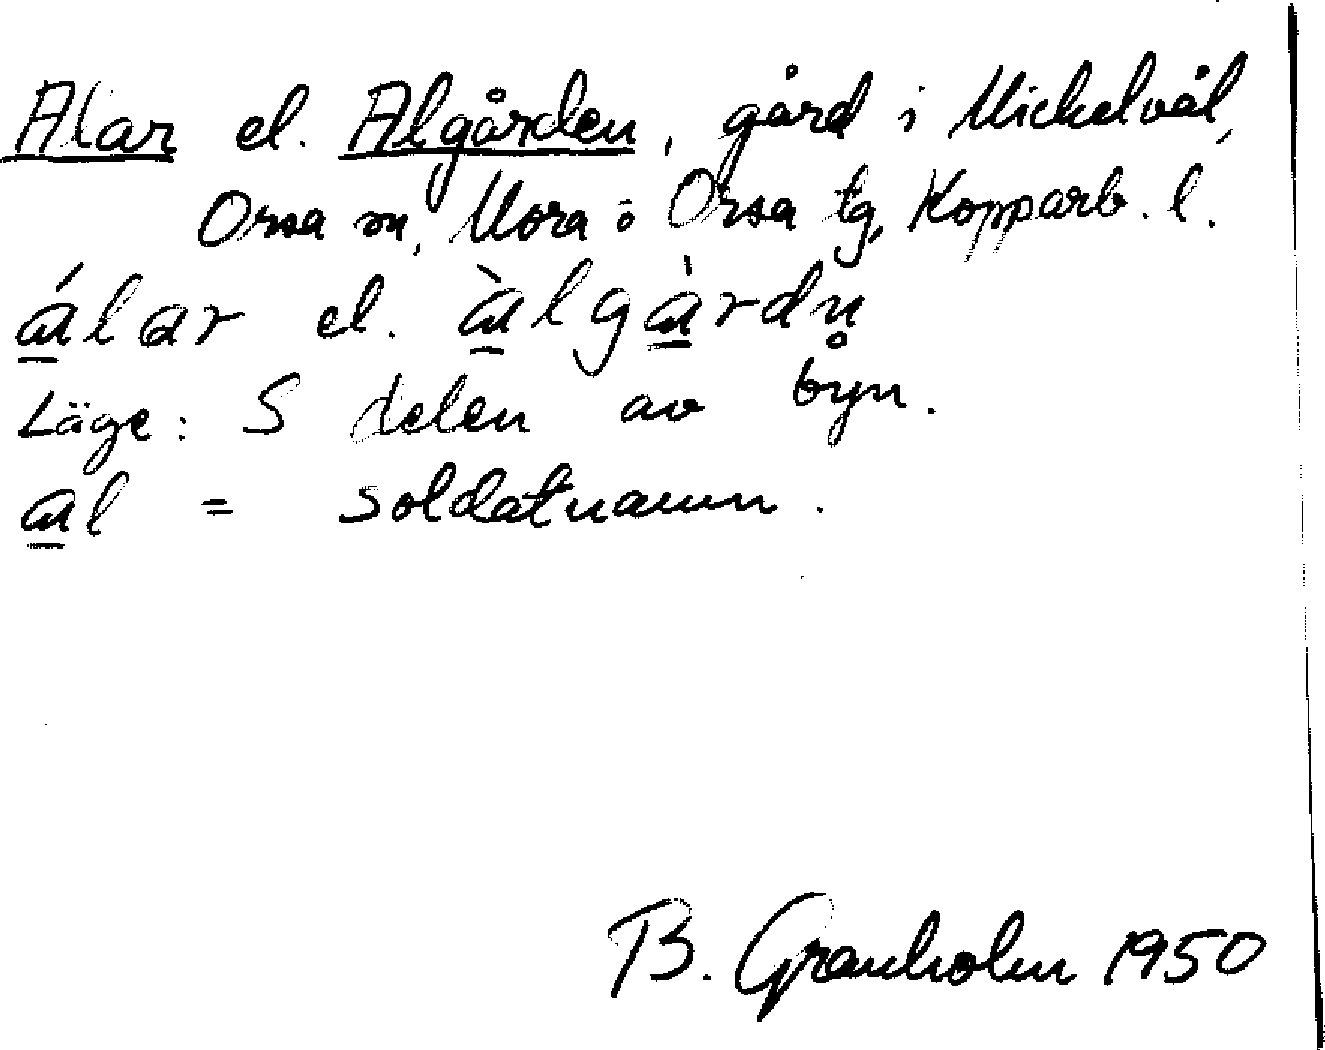 Alar el. Algården, gård i Mickelvål,
Orsa sn, Mora o Orsa tg, Kopparb. l.
álar el. àlgàrdn̥
Läge: S delen av byn.
al = soldatnamn.
B. Granholm 1950